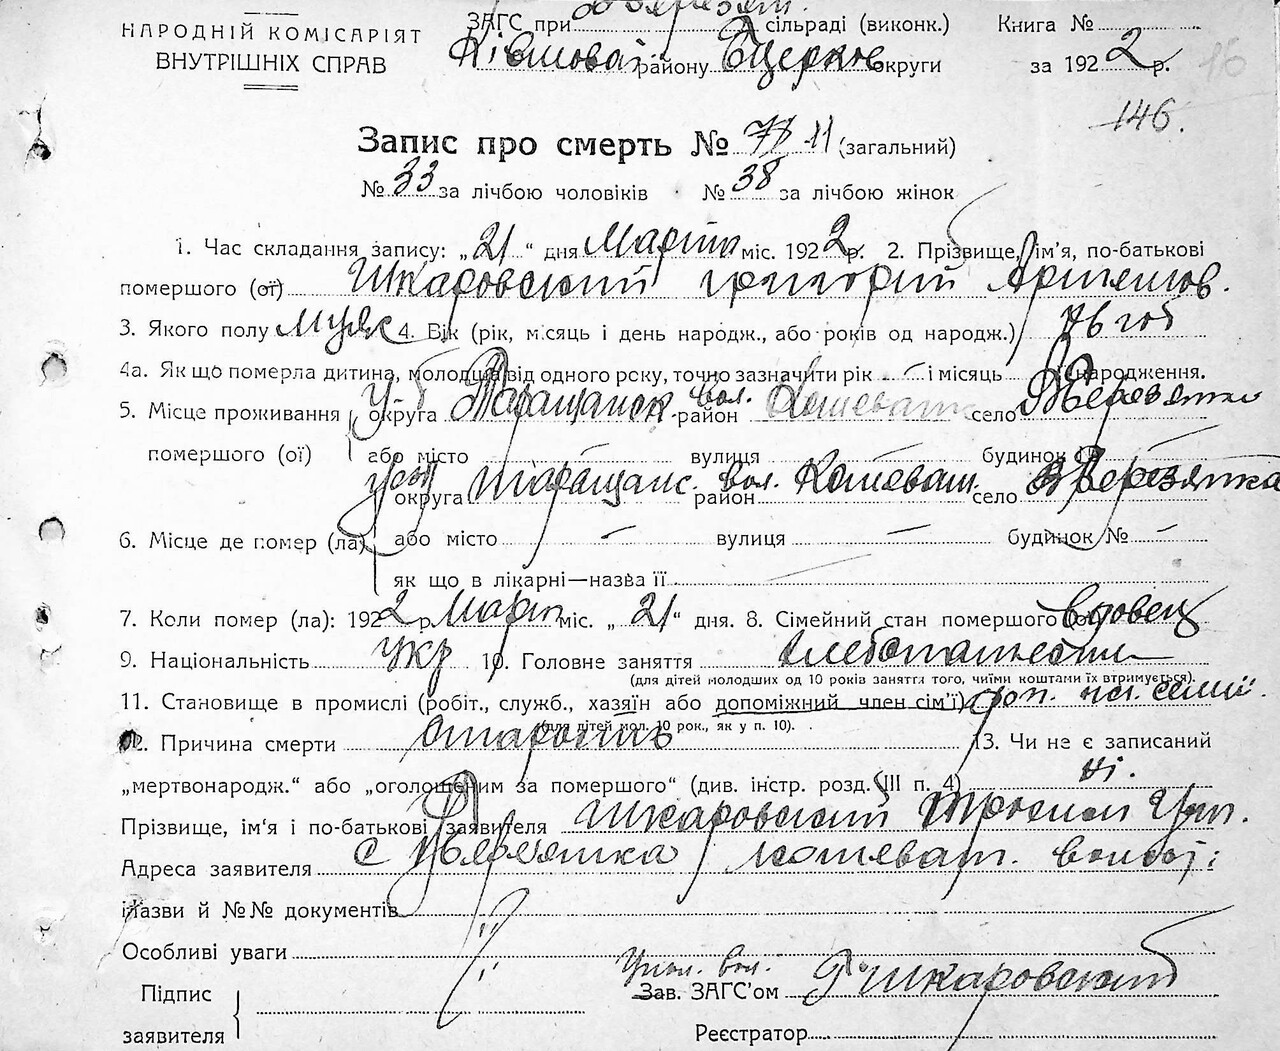 НАРОДНІЙ КОМІСАРІЯТ
ВНУТРІШНІХ СПРАВ
ЗАГС при сільраді (виконк.)
району Бцеркив округи
Книга №
за 1922 р.
146.
Запис про смерть № 71 11 (загальний)
№ 33 за лічбою чоловіків № 38 за лічбою жінок
1. Час складання запису: „21“ дня Марта міс. 1922 р. 2. Прізвище, ім'я, по-батькові
помершого (ої) Шкаровский Григорий Артемов.
3. Якого полу Мужс 4. Вік (рік, місяць і день народж., або років од народж.) 76 год
4а. Як що померла дитина, молодша від одного року, точно зазначити рік — і місяць народження.
5. Місце проживання помершого (ої) округа Таращанск. вол. район Кошеват село Березянка
або місто вулиця будинок
6. Місце де помер (ла) округа Таращанс. район вол. Кошеват. село Березянка
або місто — вулиця — будинок № —
як що в лікарні—назва її
7. Коли помер (ла): 1922 р. Март міс. „21“ дня. 8. Сімейний стан помершого вдовец
9. Національність укр 10. Головне заняття хлебопашество
(для дітей молодших од 10 років заняття того, чиїми коштами їх втримується).
11. Становище в промислі (робіт., служб., хазяїн або допоміжний член сім'ї) доп. чл. семьи.
(для дітей мол. 10 рок., як у п. 10).
12. Причина смерти старость 13. Чи не є записаний
„мертвонародж.“ або „оголошеним за помершого“ (див. інстр. розд. III п. 4) ні.
Прізвище, ім'я і по-батькові заявителя Шкаровский Трохим Григ.
Адреса заявителя с Березянка кошеват. волост:
Назви й №№ документів
Особливі уваги
Підпис заявителя
Упол. вол.
Зав. ЗАГС'ом Шкаровский
Реєстратор